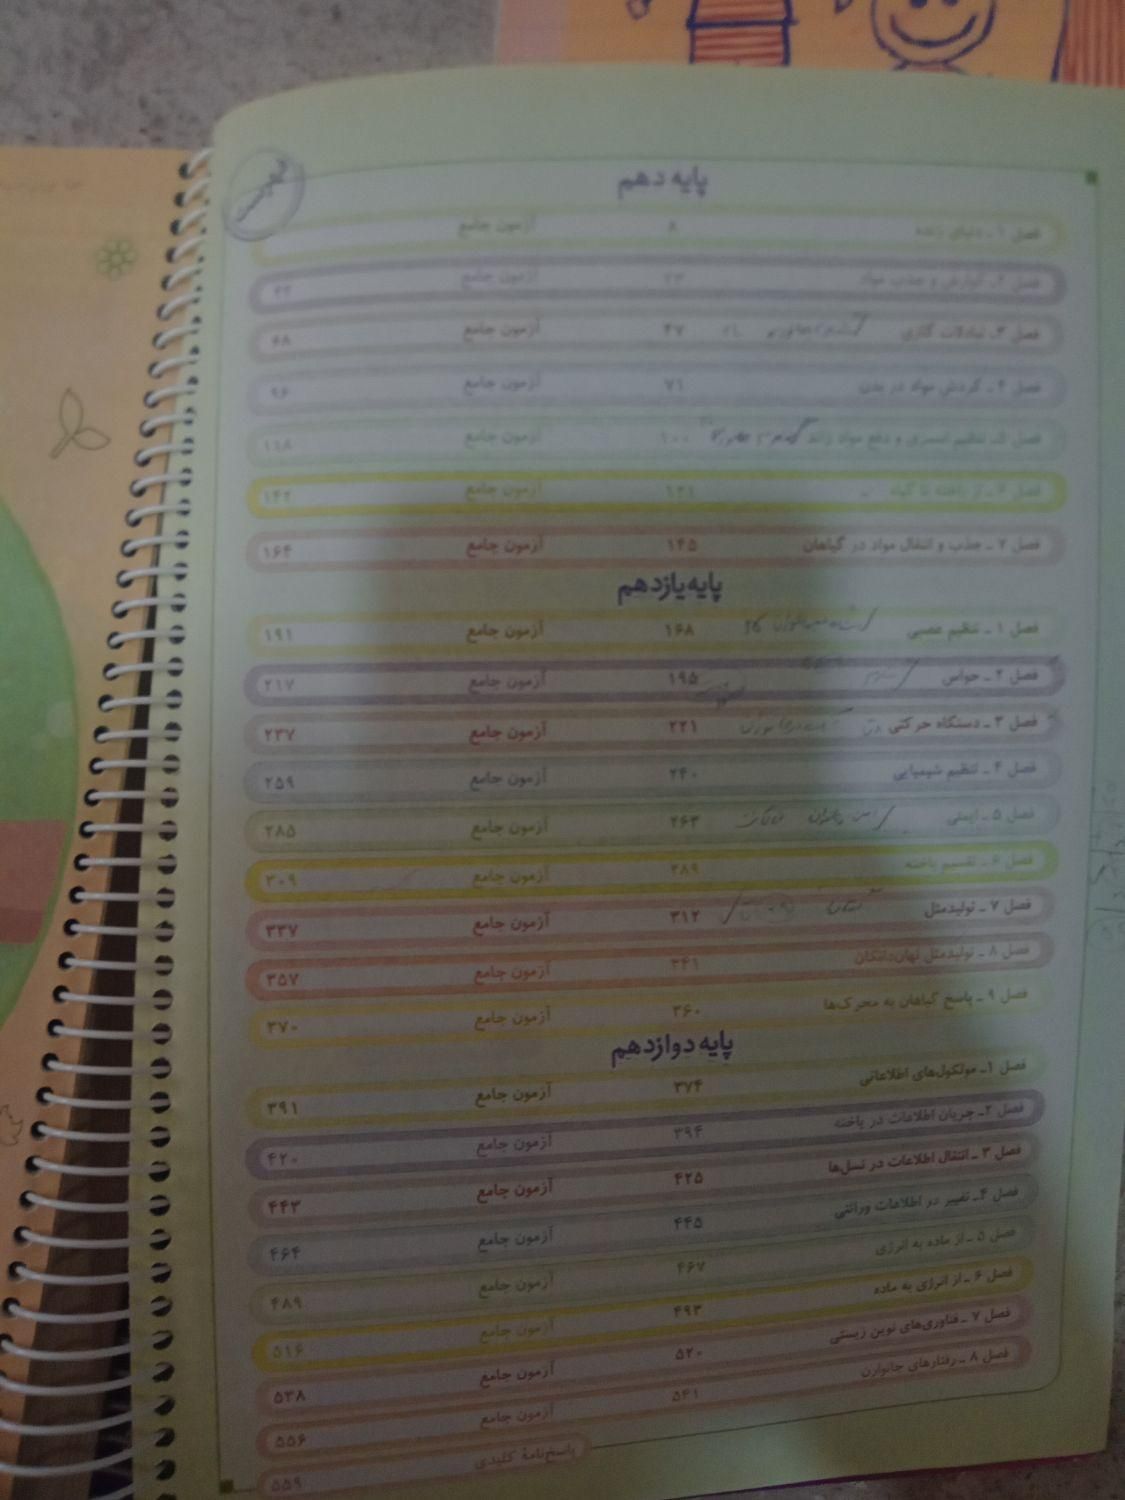 فهرست
پایه دهم
فصل ۱ ـ دنیای زنده ۸ آزمون جامع
فصل ۲ـ گوارش و جذب مواد ۲۳ آزمون جامع ۴۴
فصل ۳ـ تبادلات گازی ۴۷ آزمون جامع ۶۸
فصل ۴ ـ گردش مواد در بدن ۷۱ آزمون جامع ۹۶
فصل ۵ـ تنظیم اسمزی و دفع مواد زائد ۱۰۰ آزمون جامع ۱۱۸
فصل ۶ ـ از یاخته تا گیاه ۱۲۱ آزمون جامع ۱۴۲
فصل ۷ ـ جذب و انتقال مواد در گیاهان ۱۴۵ آزمون جامع ۱۶۴
پایه یازدهم
فصل ۱ ـ تنظیم عصبی ۱۶۸ آزمون جامع ۱۹۱
فصل ۲ ـ حواس ۱۹۵ آزمون جامع ۲۱۷
فصل ۳ ـ دستگاه حرکتی ۲۲۱ آزمون جامع ۲۳۷
فصل ۴ ـ تنظیم شیمیایی ۲۴۰ آزمون جامع ۲۵۹
فصل ۵ ـ ایمنی ۲۶۳ آزمون جامع ۲۸۵
فصل ۶ ـ تقسیم یاخته ۲۸۹ آزمون جامع ۳۰۹
فصل ۷ ـ تولیدمثل ۳۱۲ آزمون جامع ۳۳۷
فصل ۸ ـ تولیدمثل نهان‌دانگان ۳۴۱ آزمون جامع ۳۵۷
فصل ۹ ـ پاسخ گیاهان به محرک‌ها ۳۶۰ آزمون جامع ۳۷۰
پایه دوازدهم
فصل ۱ـ مولکول‌های اطلاعاتی ۳۷۴ آزمون جامع ۳۹۱
فصل ۲ـ جریان اطلاعات در یاخته ۳۹۴ آزمون جامع ۴۲۰
فصل ۳ ـ انتقال اطلاعات در نسل‌ها ۴۲۵ آزمون جامع ۴۴۳
فصل ۴ـ تغییر در اطلاعات وراثتی ۴۴۵ آزمون جامع ۴۶۴
فصل ۵ ـ از ماده به انرژی ۴۶۷ آزمون جامع ۴۸۹
فصل ۶ ـ از انرژی به ماده ۴۹۳ آزمون جامع ۵۱۶
فصل ۷ ـ فناوری‌های نوین زیستی ۵۲۰ آزمون جامع ۵۳۸
فصل ۸ ـ رفتارهای جانوارن ۵۴۱ آزمون جامع ۵۵۶
پاسخ‌نامهٔ کلیدی ۵۵۹